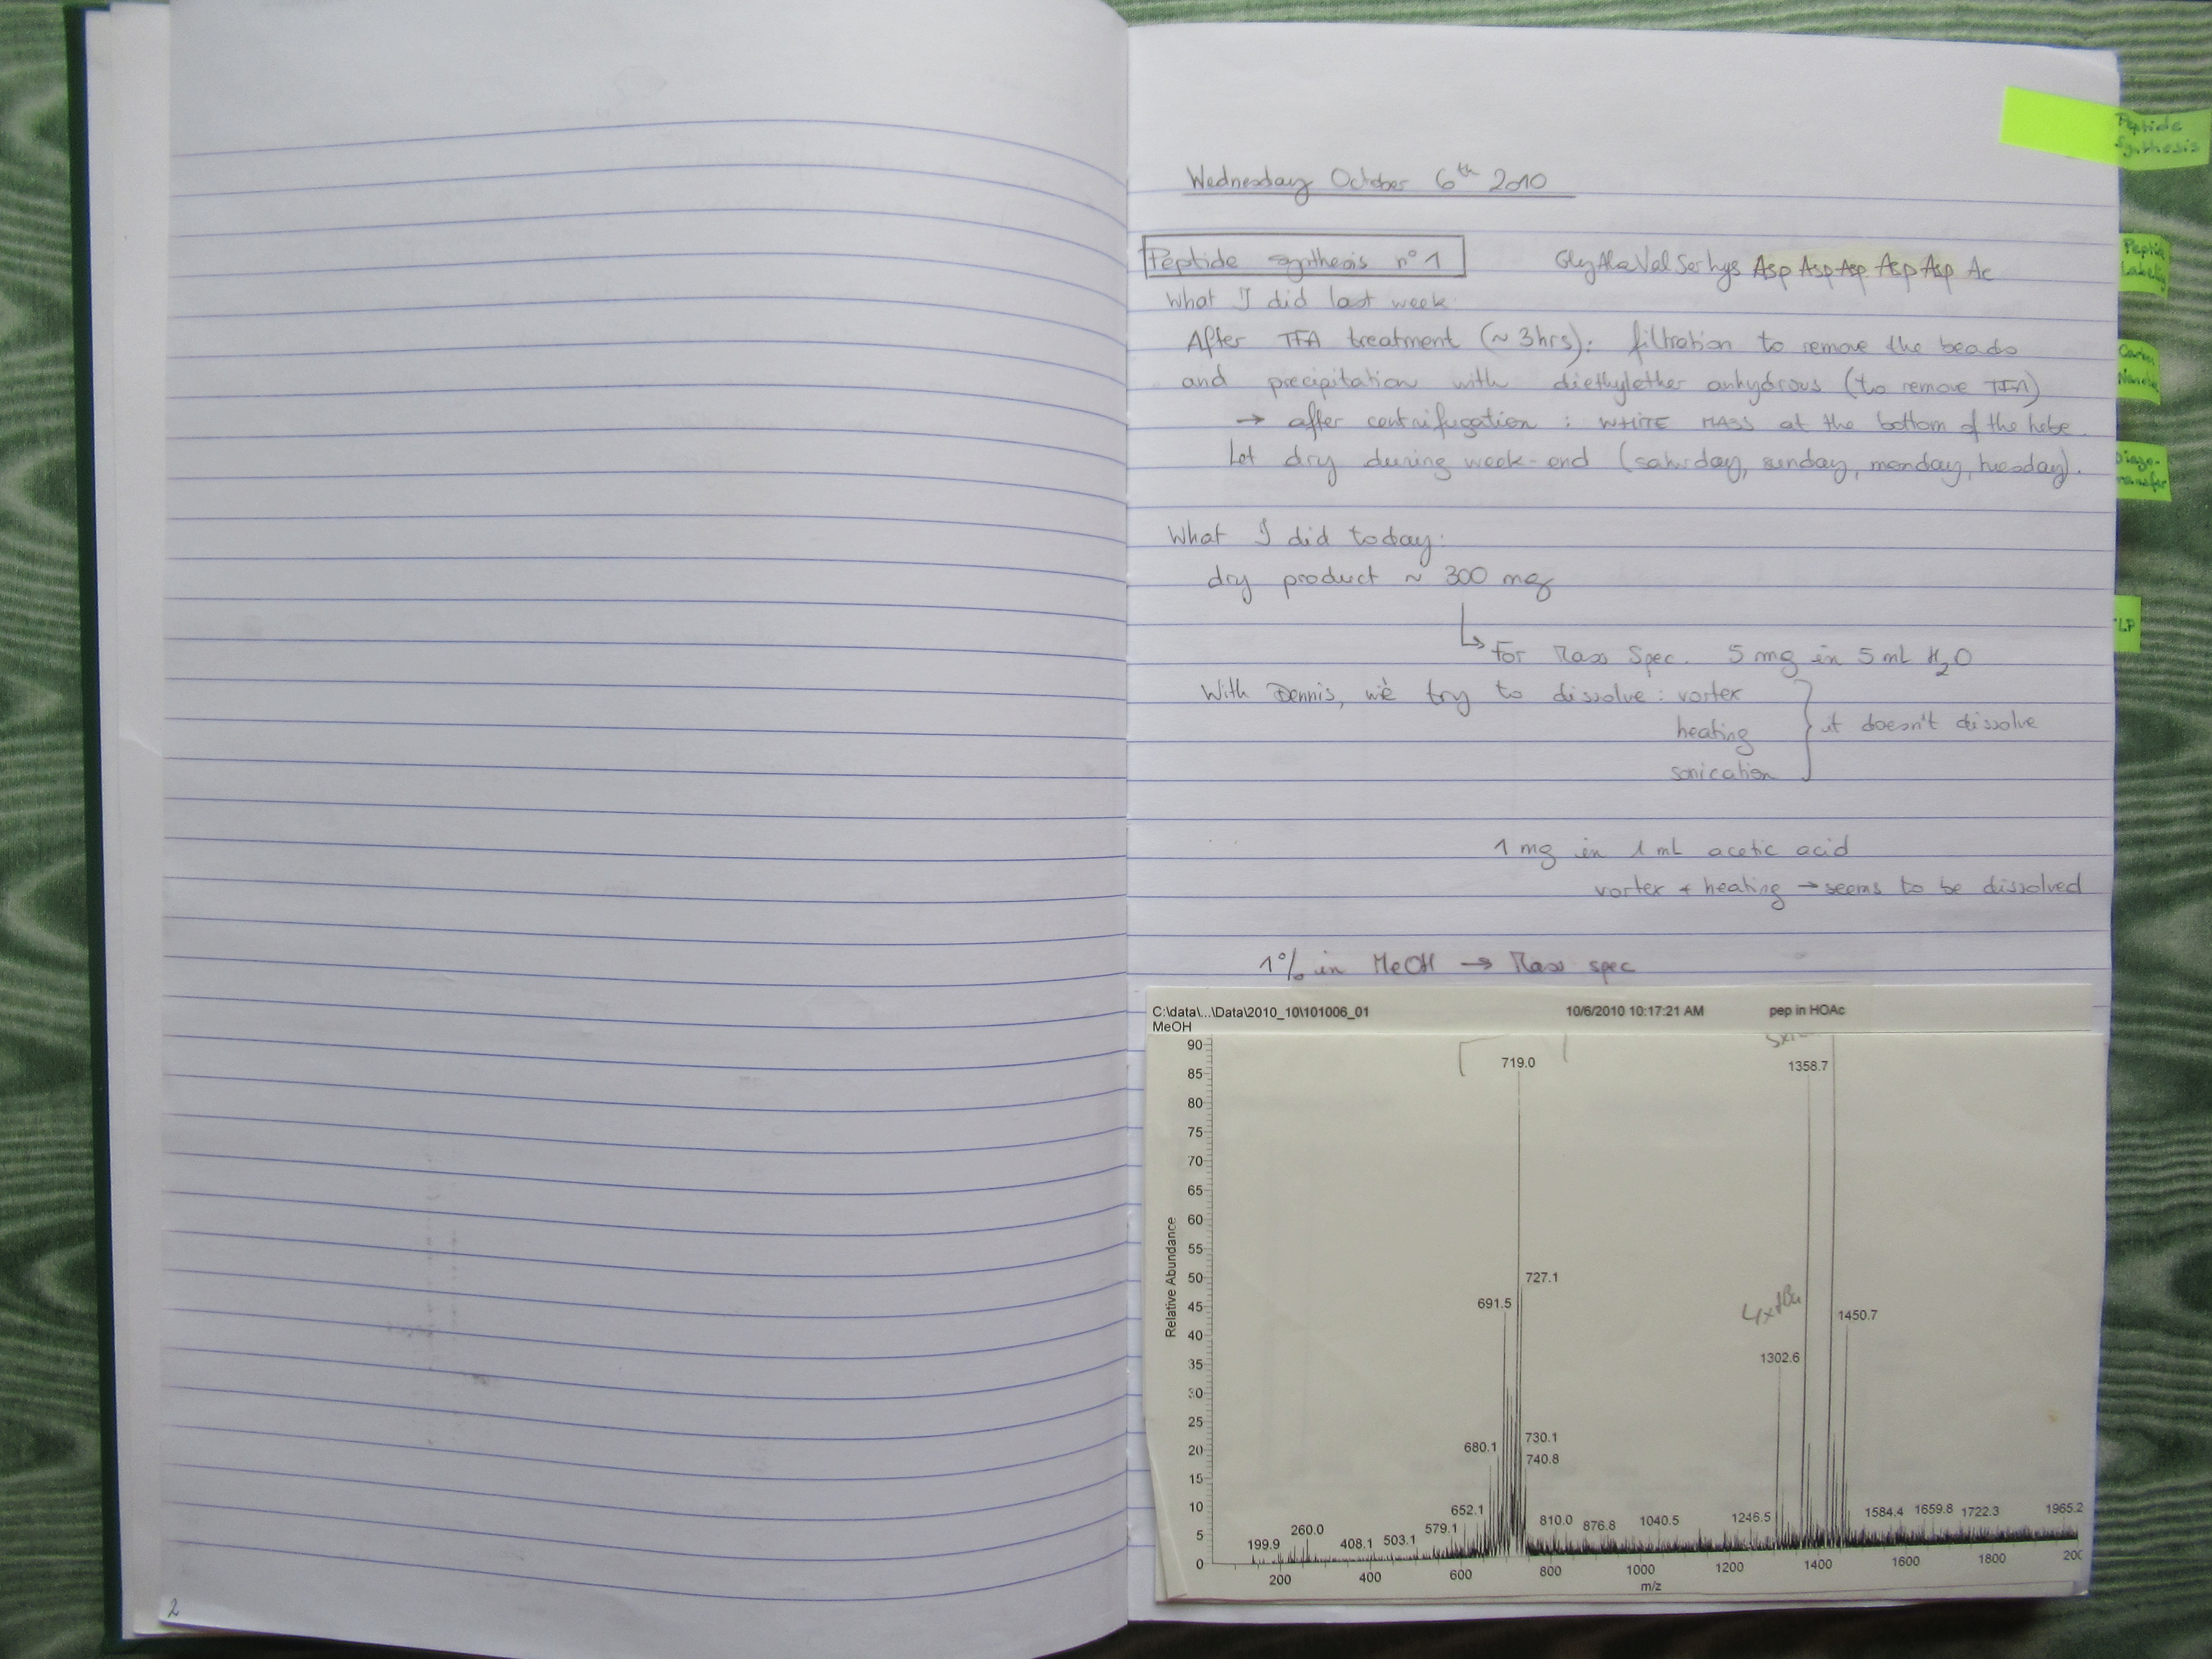 Peptide
Synthesis
Wednesday October 6th 2010
Peptide synthesis n°1
GlyAlaValSerLys Asp Asp Asp Asp Asp Ac
What I did last week:
After TFA treatment (~ 3hrs): filtration to remove the beads
and precipitation with diethylether anhydrous (to remove TFA)
→ after centrifugation : WHITE MASS at the bottom of the tube.
Let dry during week-end (saturday, sunday, monday, tuesday).
Peptide
Labeling
What I did today:
dry product ~ 300 mg
For Mass Spec. 5 mg in 5 mL H2O
With Dennis, we try to dissolve : vortex
heating
sonication
it doesn't dissolve
1 mg in 1 mL acetic acid
vortex + heating → seems to be dissolved
1% in MeOH → Mass spec
C:\data\...\Data\2010_10\101006_01
10/6/2010 10:17:21 AM
pep in HOAc
MeOH
90
85
80
75
70
65
60
55
50
45
40
35
30
25
20
15
10
5
0
Relative Abundance
719.0
1358.7
727.1
691.5
4xtBu
1450.7
1302.6
730.1
680.1
740.8
652.1
579.1
810.0
876.8
1040.5
1246.5
1584.4
1659.8
1722.3
1965.2
199.9
260.0
408.1
503.1
200
400
600
800
1000
1200
1400
1600
1800
200
m/z
2